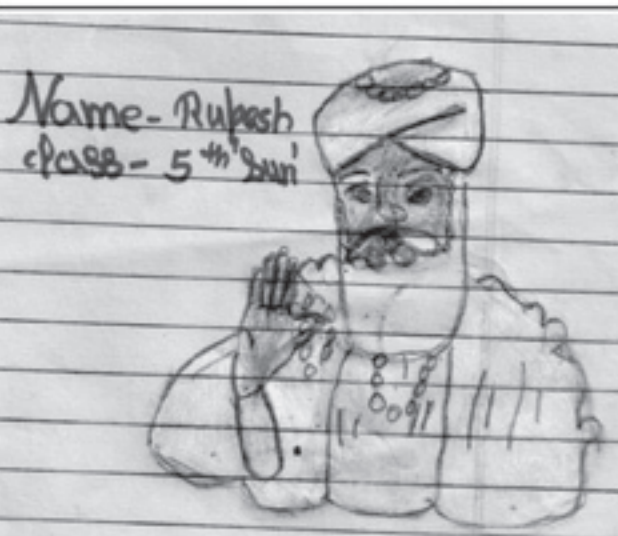 Name- Rupesh
class- 5th Sun